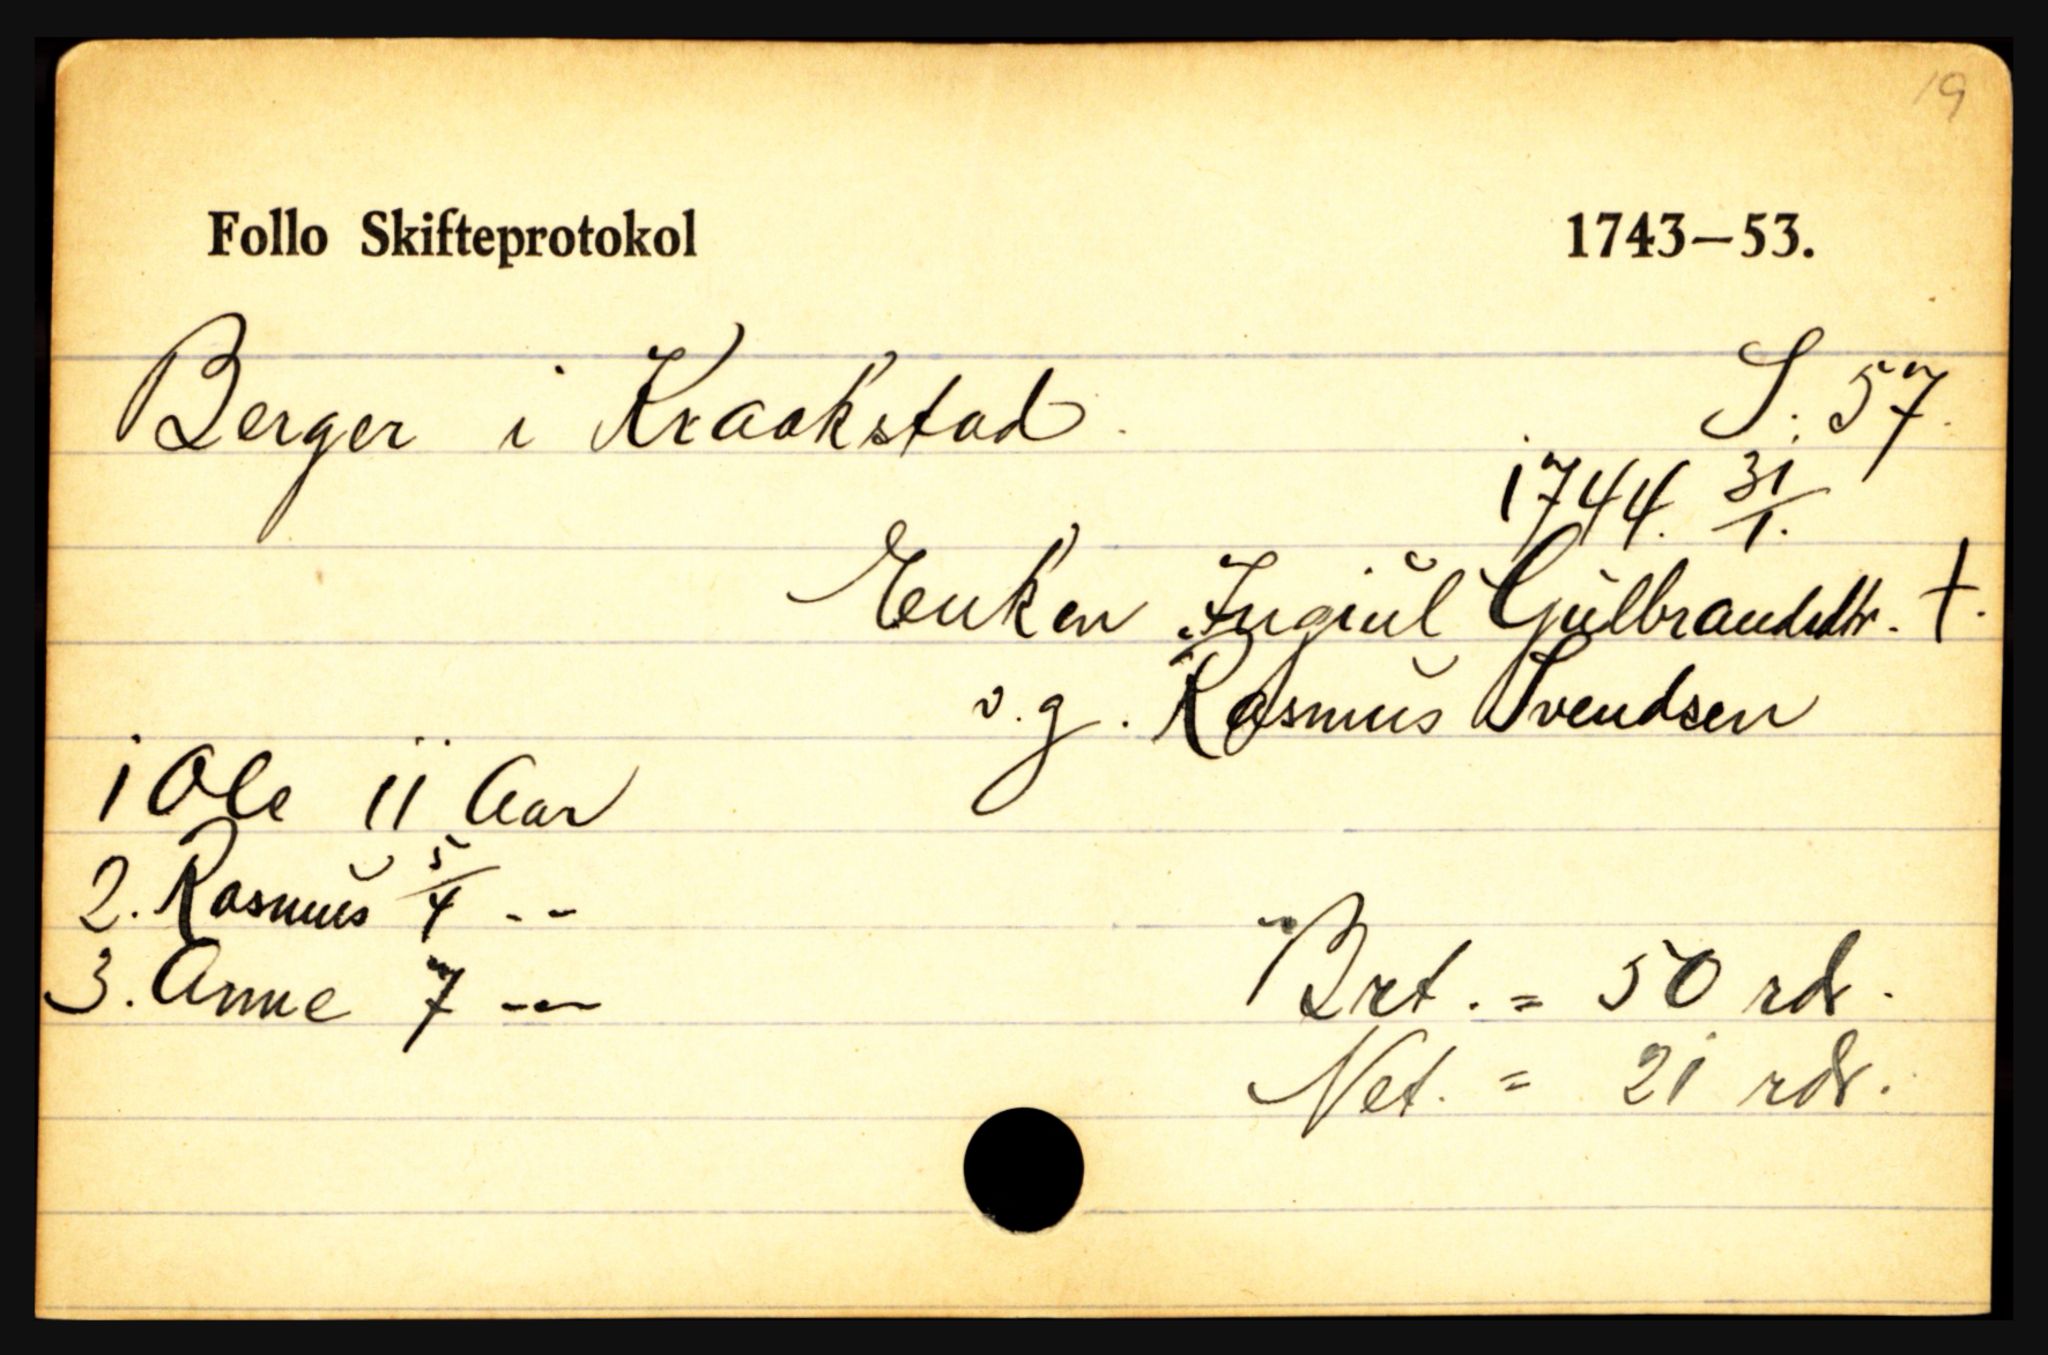 19
Follo Skifteprotokol 1743–53.
Berger i Kraakstad. S. 57.
1744. 31/1.
Enken Ingiul Gulbrandsdtr. †.
v. g. Rasmus Svendsen
1 Ole 11 Aar
2. Rasmus 5/4 --
3. Anne 7 --
Brt. = 50 rdr.
Net. = 21 rdr.